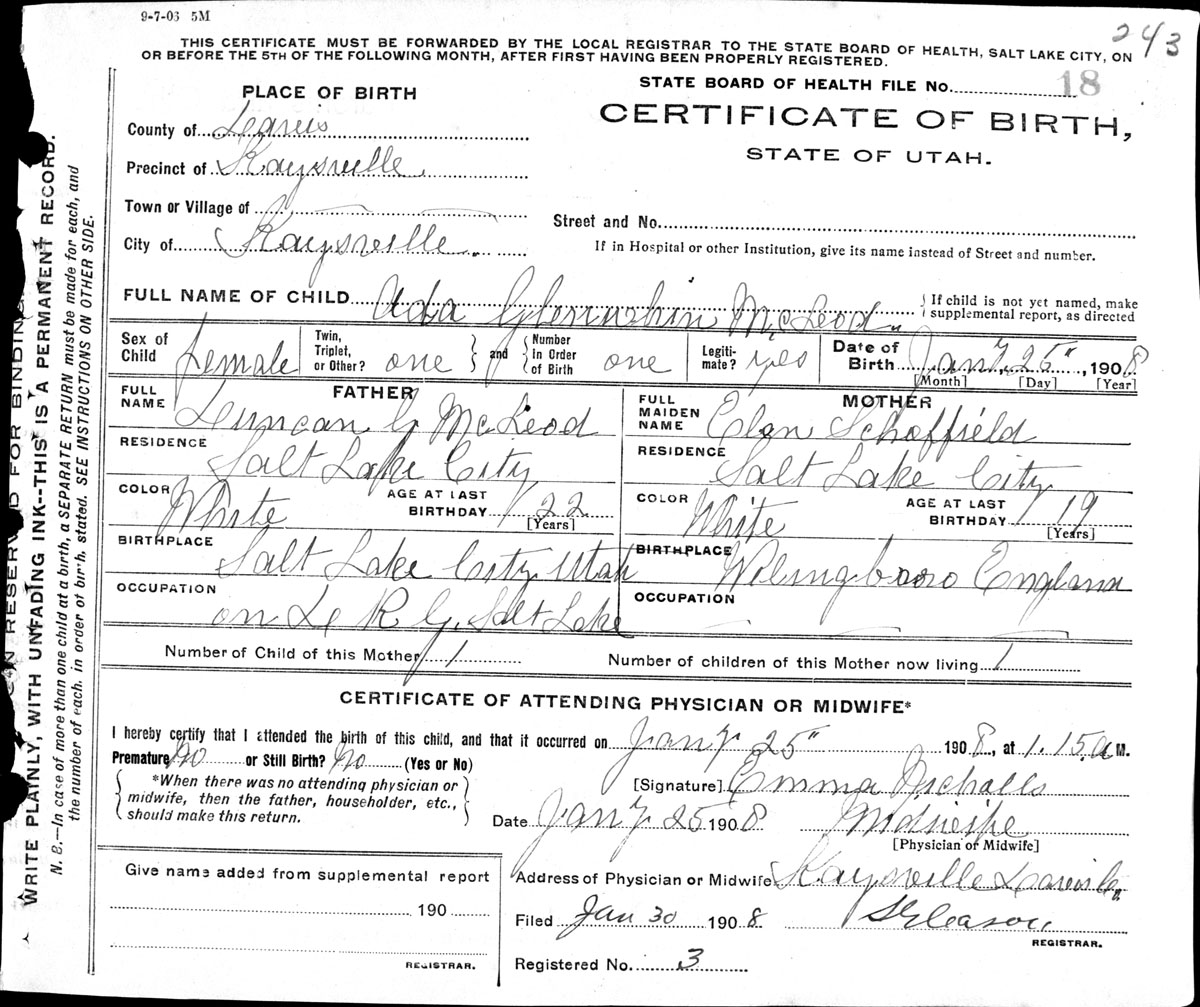 9-7-03 5M
243
THIS CERTIFICATE MUST BE FORWARDED BY THE LOCAL REGISTRAR TO THE STATE BOARD OF HEALTH, SALT LAKE CITY, ON
OR BEFORE THE 5TH OF THE FOLLOWING MONTH, AFTER FIRST HAVING BEEN PROPERLY REGISTERED.
STATE BOARD OF HEALTH FILE No. 18
PLACE OF BIRTH
CERTIFICATE OF BIRTH,
STATE OF UTAH.
County of Davis
Precinct of Kaysville
Town or Village of
Street and No.
City of Kaysville.
If in Hospital or other Institution, give its name instead of Street and number.
FULL NAME OF CHILD Ada McLeod
If child is not yet named, make
supplemental report, as directed
Sex of Child Female
Twin, Triplet, or Other? one
and Number In Order of Birth one
Legitimate? yes
Date of Birth Jany. 25", 1908
[Month] [Day] [Year]
FATHER
FULL NAME Duncan G McLeod
RESIDENCE Salt Lake City
COLOR White
AGE AT LAST BIRTHDAY 22
[Years]
BIRTHPLACE Salt Lake City Utah
OCCUPATION on D & R G. Salt Lake
MOTHER
FULL MAIDEN NAME Elen Schoffield
RESIDENCE Salt Lake City
COLOR White
AGE AT LAST BIRTHDAY 19
[Years]
BIRTHPLACE England
OCCUPATION
Number of Child of this Mother 1
Number of children of this Mother now living 1
CERTIFICATE OF ATTENDING PHYSICIAN OR MIDWIFE*
I hereby certify that I attended the birth of this child, and that it occurred on Jany 25" 1908, at 1.15 a M.
Premature No or Still Birth? No (Yes or No)
*When there was no attending physician or
midwife, then the father, householder, etc.,
should make this return.
[Signature] Emma Nicholls
Date Jany 25 1908 Midwife
[Physician or Midwife]
Give name added from supplemental report
190
REGISTRAR.
Address of Physician or Midwife Kaysville Davis Co.
Filed Jan 30 1908 Gleason
REGISTRAR.
Registered No. 3
WRITE PLAINLY, WITH UNFADING INK--THIS IS A PERMANENT RECORD.
N. B.--In case of more than one child at a birth, a SEPARATE RETURN must be made for each, and
the number of each, in order of birth, stated. SEE INSTRUCTIONS ON OTHER SIDE.